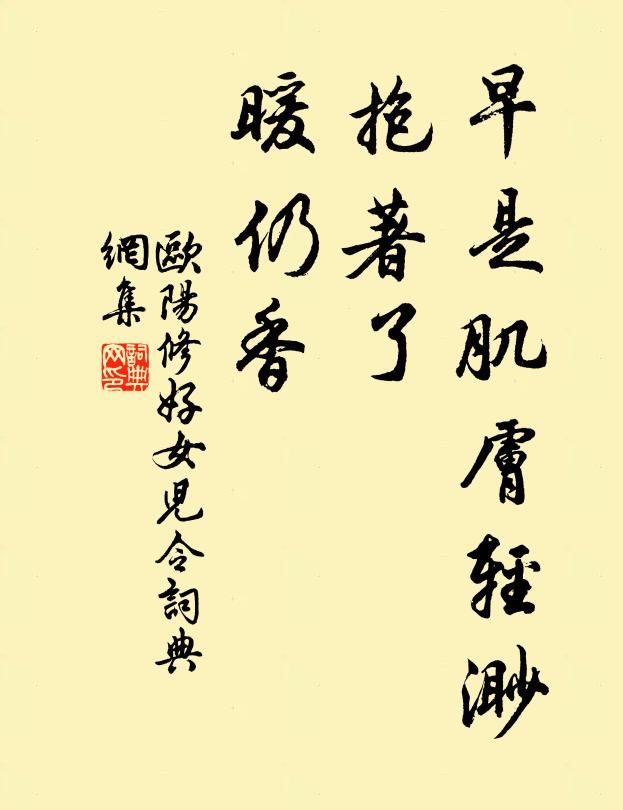 早是肌膚輕渺
抱著了
暖仍香
歐陽修好女兒令詞典
網集
詞典
网印